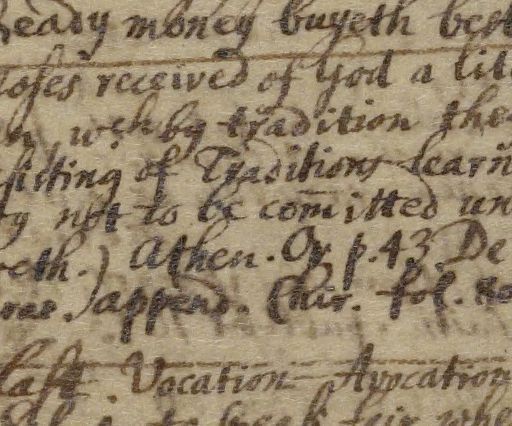 ready money buyeth best
Moses received of God a lit
wch by tradition the
sisting of Traditions learn̄
not to be com̄itted un
eth.) Athen. Or. p. 43. De
append. Chir. fol.
last. Vocation Avocation
to speak fair whe